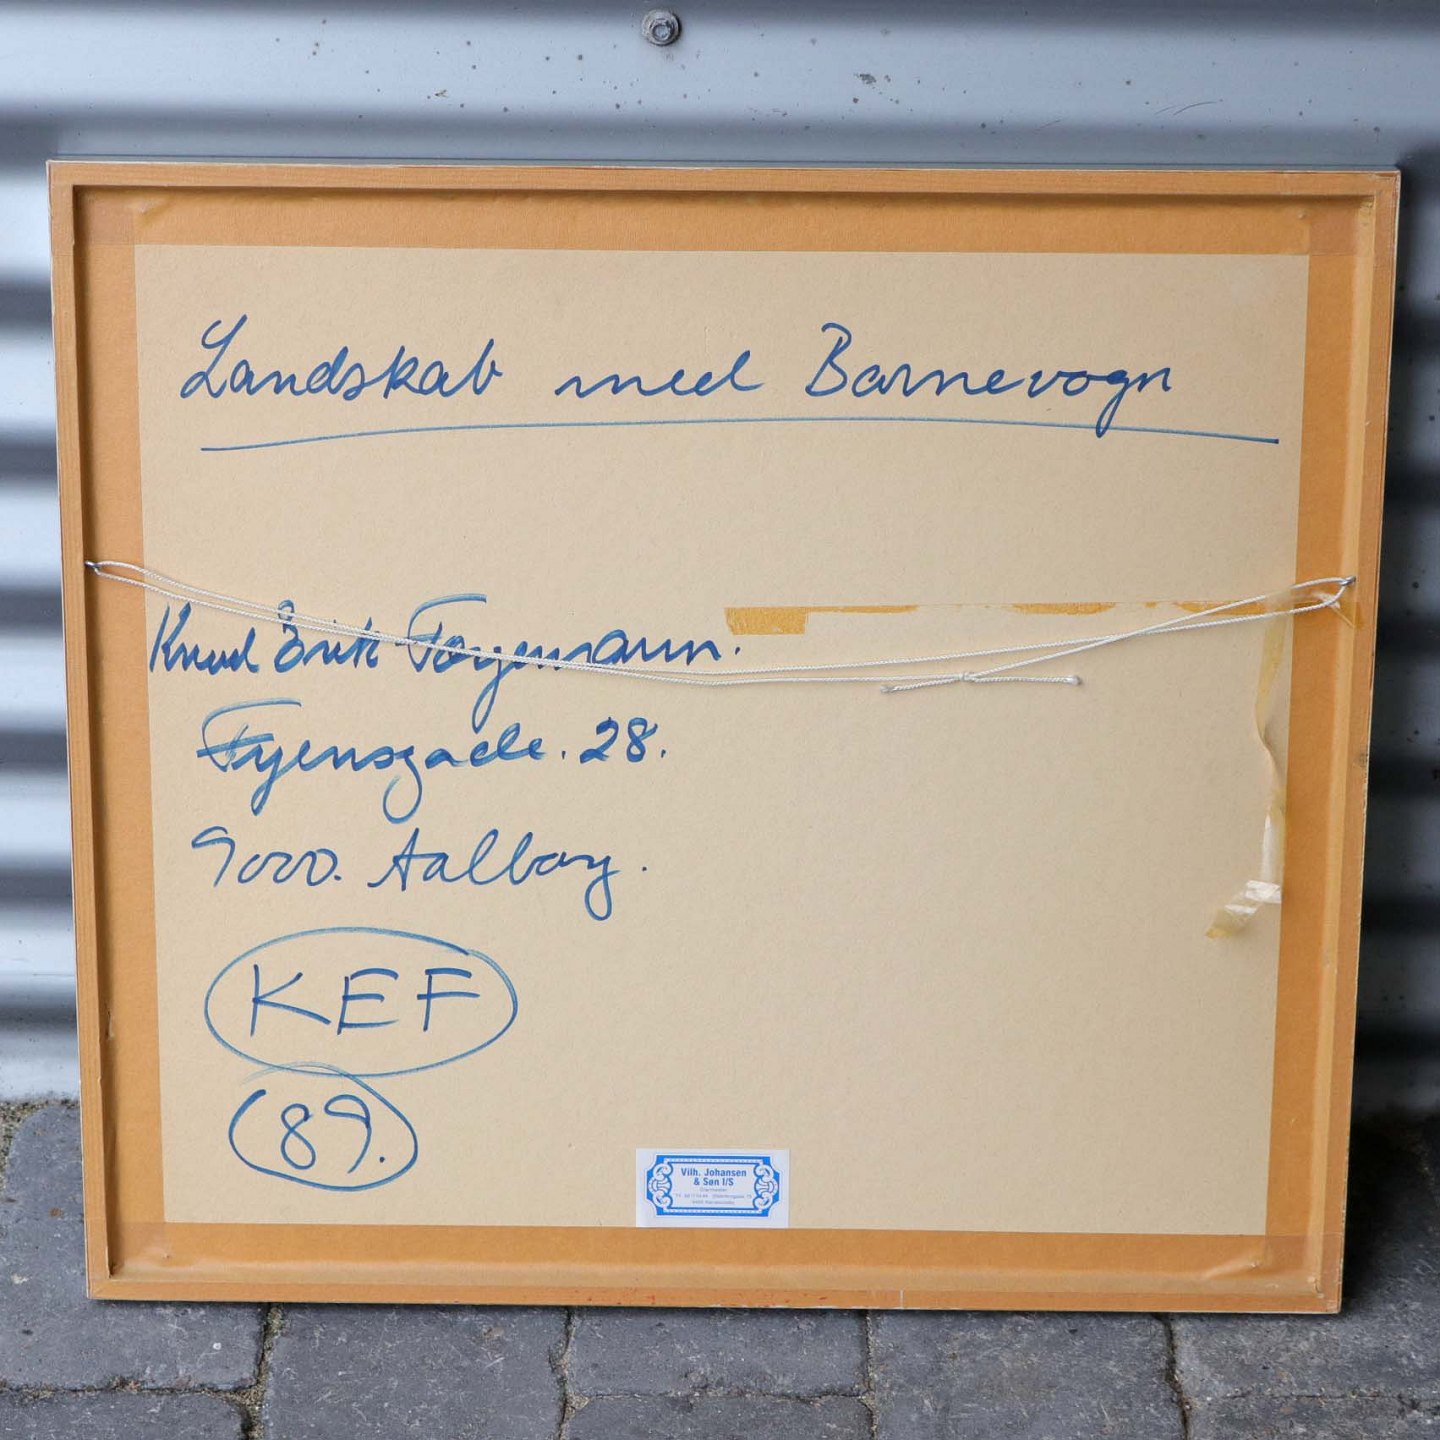 Landskab med Barnevogn
Knud Erik Færgemann.
Fyensgade. 28.
9000. Aalborg.
KEF
89.
Vilh. Johansen
& Søn I/S
Glarmester